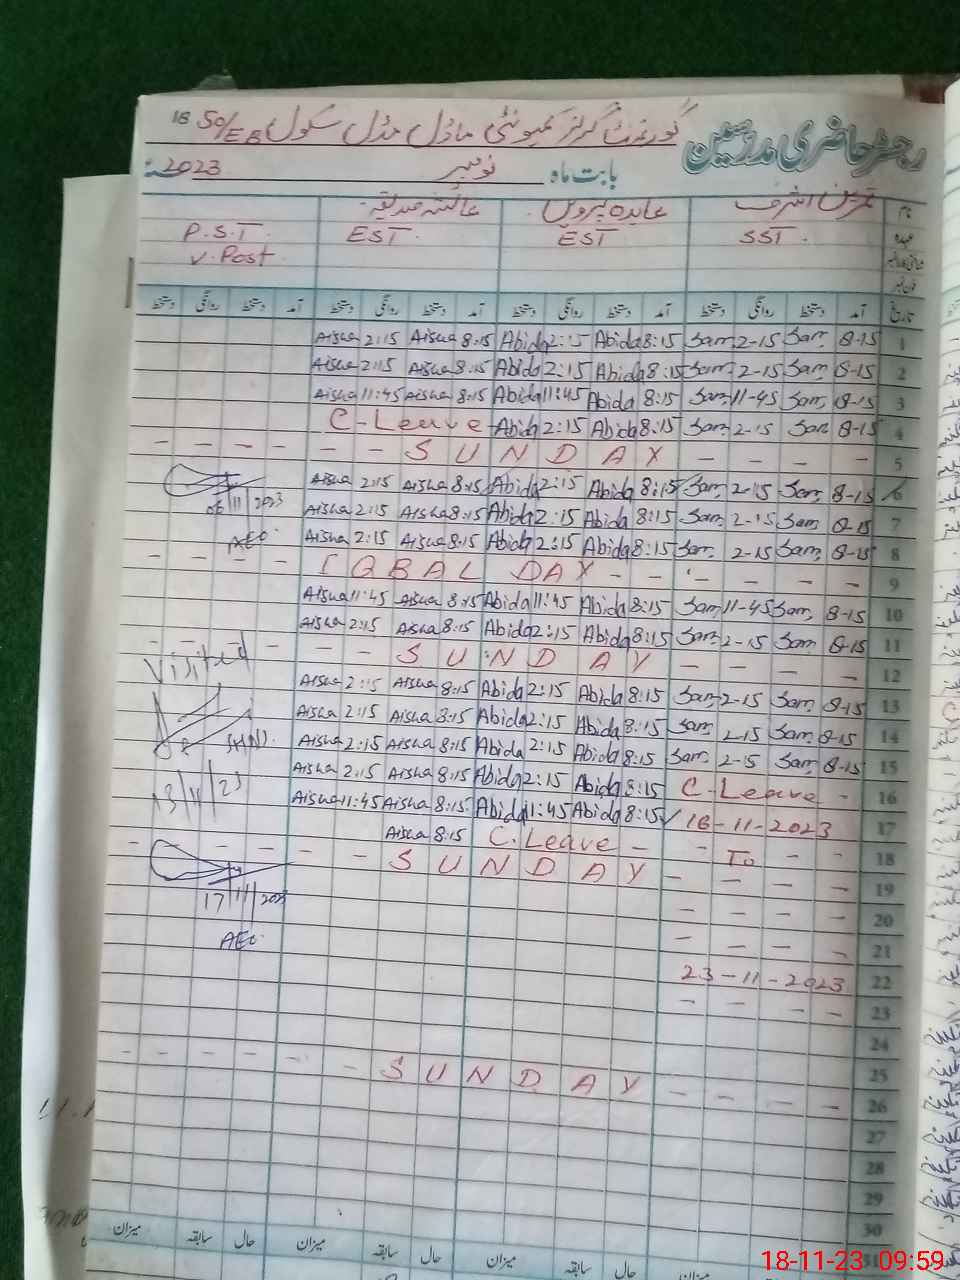 رجسٹر حاضری مدرسین گورنمنٹ گرلز کمیونٹی ماڈل مڈل سکول 50/EB
بابت ماہ نومبر 2023ء
نام عابدہ پروین عائشہ صدیقہ
عہدہ SST. EST EST. P.S.T.
V. Post
فون نمبر
تاریخ آمد دستخط روانگی دستخط آمد دستخط روانگی دستخط آمد دستخط روانگی دستخط آمد دستخط روانگی دستخط
1 8-15 Sam 2-15 Sam 8:15 Abida 2:15 Abida 8:15 Aisha 2:15 Aisha
2 8-15 Sam 2-15 Sam 8:15 Abida 2:15 Abida 8:15 Aisha 2:15 Aisha
3 8-15 Sam 11-45 Sam 8:15 Abida 11:45 Abida 8:15 Aisha 11:45 Aisha
4 8-15 Sam 2-15 Sam 8:15 Abida 2:15 Abida C-Leave
5 - - - - - - SUNDAY - - - -
6 8-15 Sam 2-15 Sam 8:15 Abida 2:15 Abida 8:15 Aisha 2:15 Aisha
06/11/2023
7 8-15 Sam 2-15 Sam 8:15 Abida 2:15 Abida 8:15 Aisha 2:15 Aisha
8 8-15 Sam 2-15 Sam 8:15 Abida 2:15 Abida 8:15 Aisha 2:15 Aisha
AEO
9 - - - - IQBAL DAY - - - - - -
10 8-15 Sam 11-45 Sam 8:15 Abida 11:45 Abida 8:15 Aisha 11:45 Aisha
11 8-15 Sam 2-15 Sam 8:15 Abida 2:15 Abida 8:15 Aisha 2:15 Aisha
12 - - - - - - SUNDAY - - - -
Visited
13 8-15 Sam 2-15 Sam 8:15 Abida 2:15 Abida 8:15 Aisha 2:15 Aisha
14 8-15 Sam 2-15 Sam 8:15 Abida 2:15 Abida 8:15 Aisha 2:15 Aisha
15 8-15 Sam 2-15 Sam 8:15 Abida 2:15 Abida 8:15 Aisha 2:15 Aisha
16 C-Leave - 8:15 Abida 2:15 Abida 8:15 Aisha 2:15 Aisha
13/11/23
17 16-11-2023 8:15 Abida 11:45 Abida 8:15 Aisha 11:45 Aisha
18 - To - - C.Leave - 8:15 Aisha
19 - - - - - - SUNDAY - - - -
17/11/2023
20 - - - -
AEO
21 - - - -
22 23-11-2023
23 - -
24
25
26 - - - - - - SUNDAY - - - -
27
28
29
30
31 میزان حال سابقہ میزان حال سابقہ میزان حال سابقہ میزان
18-11-23 09:59